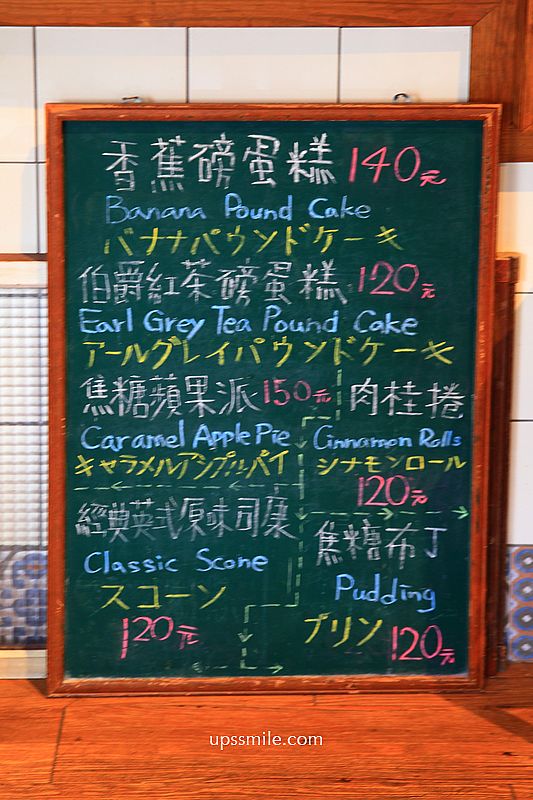 香蕉磅蛋糕 140元
Banana Pound Cake
バナナパウンドケーキ
伯爵紅茶磅蛋糕 120元
Earl Grey Tea Pound Cake
アールグレイパウンドケーキ
焦糖蘋果派 150元
Caramel Apple Pie
キャラメルアップルパイ
肉桂捲
Cinnamon Rolls
シナモンロール
120元
經典英式原味司康
Classic Scone
スコーン
120元
焦糖布丁
Pudding
プリン 120元
upssmile.com